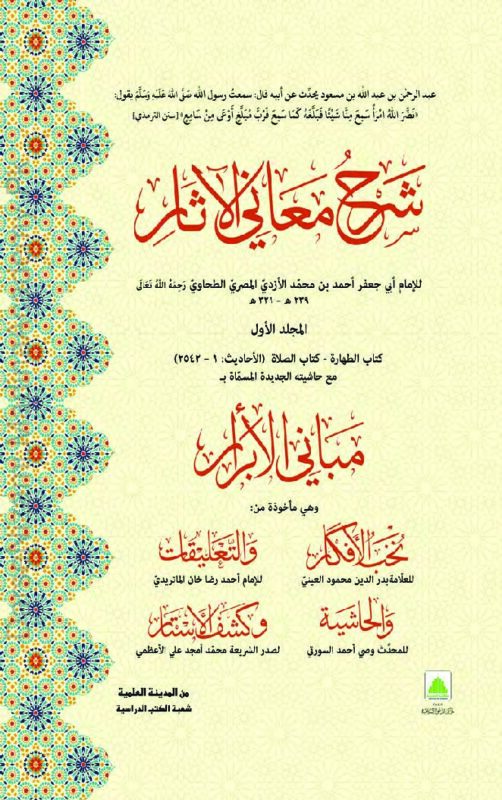 عبد الرحمٰن بن عبد الله بن مسعود يحدّث عن أبيه قال: سمعتُ رسول الله صَلَّى اللهُ عَلَيْهِ وَسَلَّمَ يقول:
«نَضَّرَ اللهُ امْرَأً سَمِعَ مِنَّا شَيْئًا فَبَلَّغَهُ كَمَا سَمِعَ فَرُبَّ مُبَلَّغٍ أَوْعَى مِنْ سَامِعٍ» [سنن الترمذي]
شَرْحُ مَعَانِي الْآثَارِ
للإمام أبي جعفر أحمد بن محمّد الأزديّ المصريّ الطحاويّ رَحِمَهُ اللهُ تَعَالَى
٢٣٩ ﻫ - ٣٢١ ﻫ
المجلد الأول
كتاب الطهارة - كتاب الصلاة (الأحاديث: ١ - ٢٥٤٢)
مع حاشيته الجديدة المسمّاة بـ
مَبَانِي الْأَبْرَارِ
وهي مأخوذة من:
نُخَبُ الْأَفْكَارِ وَالتَّعْلِيقَات
للعلّامة بدر الدين محمود العينيّ للإمام أحمد رضا خان الماتريديّ
وَالْحَاشِيَة وَكَشْفُ الْأَسْتَارِ
للمحدّث وصي أحمد السورتي لصدر الشريعة محمّد أمجد علي الأعظمي
من المدينة العلمية
شعبة الكتب الدراسية